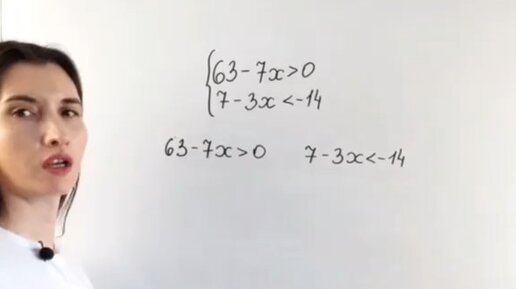 63-7x>0
7-3x<-14
63-7x>0 7-3x<-14